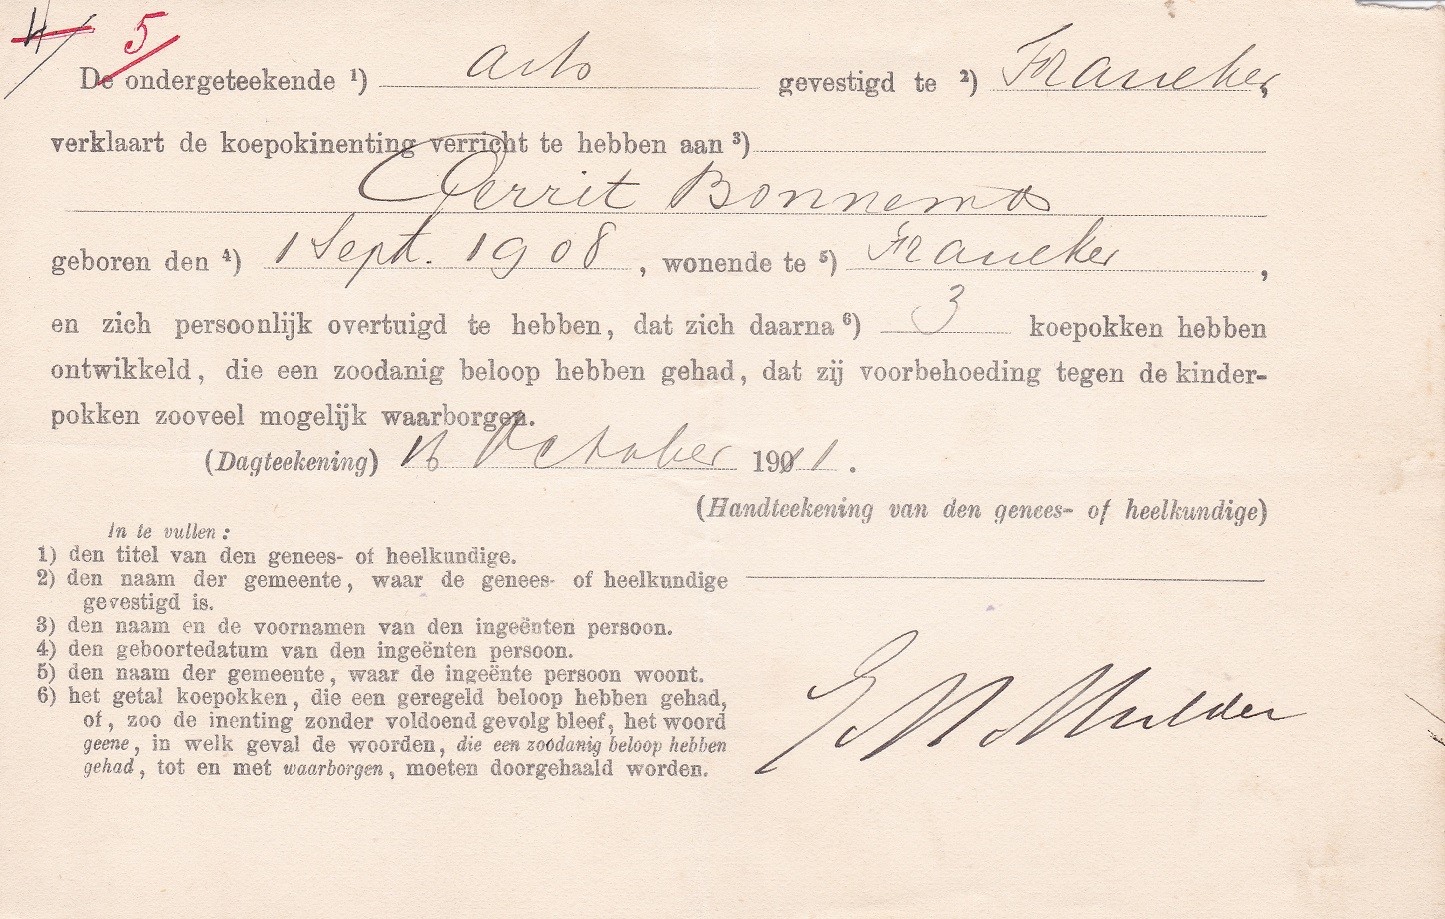 4 5
De ondergeteekende ¹) arts gevestigd te ²) Franeker,
verklaart de koepokinenting verricht te hebben aan ³)
Gerrit Bonnema
geboren den ⁴) 1 Sept. 1908, wonende te ⁵) Franeker,
en zich persoonlijk overtuigd te hebben, dat zich daarna ⁶) 3 koepokken hebben
ontwikkeld, die een zoodanig beloop hebben gehad, dat zij voorbehoeding tegen de kinder-
pokken zooveel mogelijk waarborgen.
(Dagteekening) 16 October 1911.
(Handteekening van den genees- of heelkundige)
In te vullen:
1) den titel van den genees- of heelkundige.
2) den naam der gemeente, waar de genees- of heelkundige
gevestigd is.
3) den naam en de voornamen van den ingeënten persoon.
4) den geboortedatum van den ingeënten persoon.
5) den naam der gemeente, waar de ingeënte persoon woont.
6) het getal koepokken, die een geregeld beloop hebben gehad,
of, zoo de inenting zonder voldoend gevolg bleef, het woord
geene, in welk geval de woorden, die een zoodanig beloop hebben
gehad, tot en met waarborgen, moeten doorgehaald worden.
Mulder